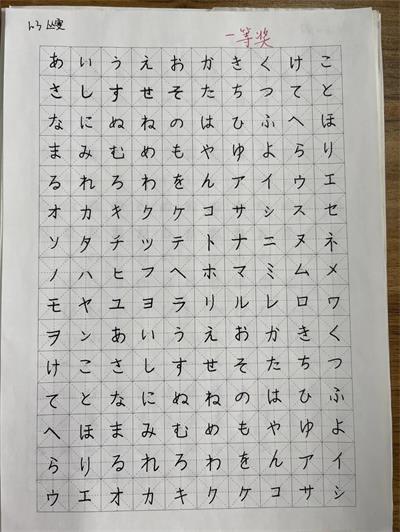 一等奖
あいうえおかきくけこ
さしすせそたちつてと
なにぬねのはひふへほ
まみむめもやゆよらり
るれろわをんアイウエ
オカキクケコサシスセ
ソタチツテトナニヌネ
ノハヒフヘホマミムメ
モヤユヨラリルレロワ
ヲンあいうえおかきく
けこさしすせそたちつ
てとなにぬねのはひふ
へほまみむめもやゆよ
らりるれろわをんアイ
ウエオカキクケコサシ